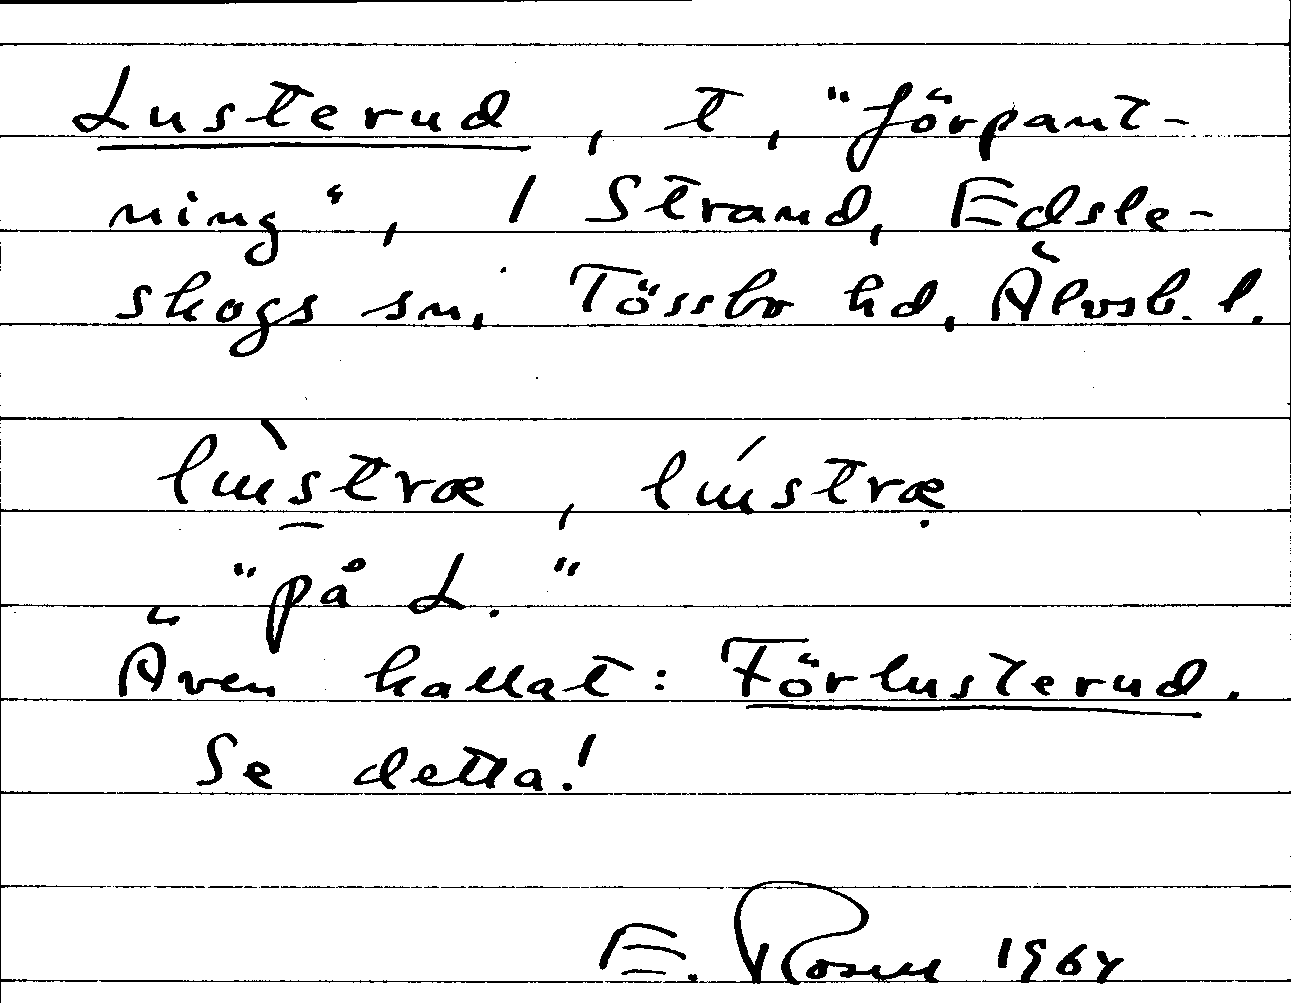 Lusterud, t, "förpant-
ning", 1 Strand, Edsle-
skogs sn, Tössbo hd, Älvsb. l.
lùstræ, lústræ
"på L."
Även kallat: Förlusterud.
Se detta!
E. Rosell 1964